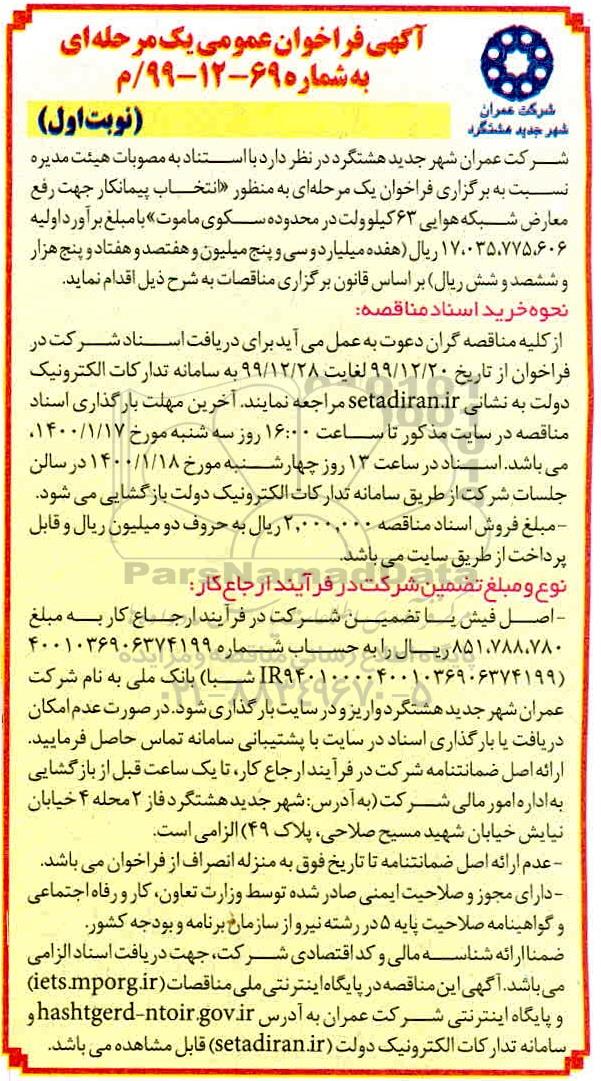 آگهی فراخوان عمومی یک مرحله‌ای
به شماره ۶۹-۱۲-۹۹/م
شرکت عمران
شهر جدید هشتگرد
(نوبت اول)
شرکت عمران شهر جدید هشتگرد در نظر دارد با استناد به مصوبات هیئت مدیره
نسبت به برگزاری فراخوان یک مرحله‌ای به منظور «انتخاب پیمانکار جهت رفع
معارض شبکه هوایی ۶۳ کیلو ولت در محدوده سکوی ماموت» با مبلغ برآورد اولیه
۱۷,۰۳۵,۷۷۵,۶۰۶ ریال (هفده میلیارد و سی و پنج میلیون و هفتصد و هفتاد و پنج هزار
و ششصد و شش ریال) بر اساس قانون برگزاری مناقصات به شرح ذیل اقدام نماید.
نحوه خرید اسناد مناقصه:
از کلیه مناقصه گران دعوت به عمل می آید برای دریافت اسناد شرکت در
فراخوان از تاریخ ۹۹/۱۲/۲۰ لغایت ۹۹/۱۲/۲۸ به سامانه تدارکات الکترونیک
دولت به نشانی setadiran.ir مراجعه نمایند. آخرین مهلت بارگذاری اسناد
مناقصه در سایت مذکور تا ساعت ۱۶:۰۰ روز سه شنبه مورخ ۱۴۰۰/۱/۱۷،
می باشد. اسناد در ساعت ۱۳ روز چهارشنبه مورخ ۱۴۰۰/۱/۱۸ در سالن
جلسات شرکت از طریق سامانه تدارکات الکترونیک دولت بازگشایی می شود.
-مبلغ فروش اسناد مناقصه ۲,۰۰۰,۰۰۰ ریال به حروف دو میلیون ریال و قابل
پرداخت از طریق سایت می باشد.
ParsNamadData
نوع و مبلغ تضمین شرکت در فرآیند ارجاع کار:
-اصل فیش یا تضمین شرکت در فرآیند ارجاع کار به مبلغ
۸۵۱,۷۸۸,۷۸۰ ریال را به حساب شماره ۴۰۰۱۰۳۶۹۰۶۳۷۴۱۹۹
(IR۹۴۰۱۰۰۰۰۴۰۰۱۰۳۶۹۰۶۳۷۴۱۹۹ شبا) بانک ملی به نام شرکت
۰۲۱-۸۸۳۴۹۶۷۰-۵
عمران شهر جدید هشتگرد واریز و در سایت بارگذاری شود. در صورت عدم امکان
دریافت یا بارگذاری اسناد در سایت با پشتیبانی سامانه تماس حاصل فرمایید.
ارائه اصل ضمانتنامه شرکت در فرآیند ارجاع کار، تا یک ساعت قبل از بازگشایی
به اداره امور مالی شرکت (به آدرس: شهر جدید هشتگرد فاز ۲ محله ۴ خیابان
نیایش خیابان شهید مسیح صلاحی، پلاک ۴۹) الزامی است.
-عدم ارائه اصل ضمانتنامه تا تاریخ فوق به منزله انصراف از فراخوان می باشد.
-دارای مجوز و صلاحیت ایمنی صادر شده توسط وزارت تعاون، کار و رفاه اجتماعی
و گواهینامه صلاحیت پایه ۵ در رشته نیرو از سازمان برنامه و بودجه کشور.
ضمنا ارائه شناسه مالی و کد اقتصادی شرکت، جهت دریافت اسناد الزامی
می باشد. آگهی این مناقصه در پایگاه اینترنتی ملی مناقصات (iets.mporg.ir)
و پایگاه اینترنتی شرکت عمران به آدرس hashtgerd-ntoir.gov.ir و
سامانه تدارکات الکترونیک دولت (setadiran.ir) قابل مشاهده می باشد.